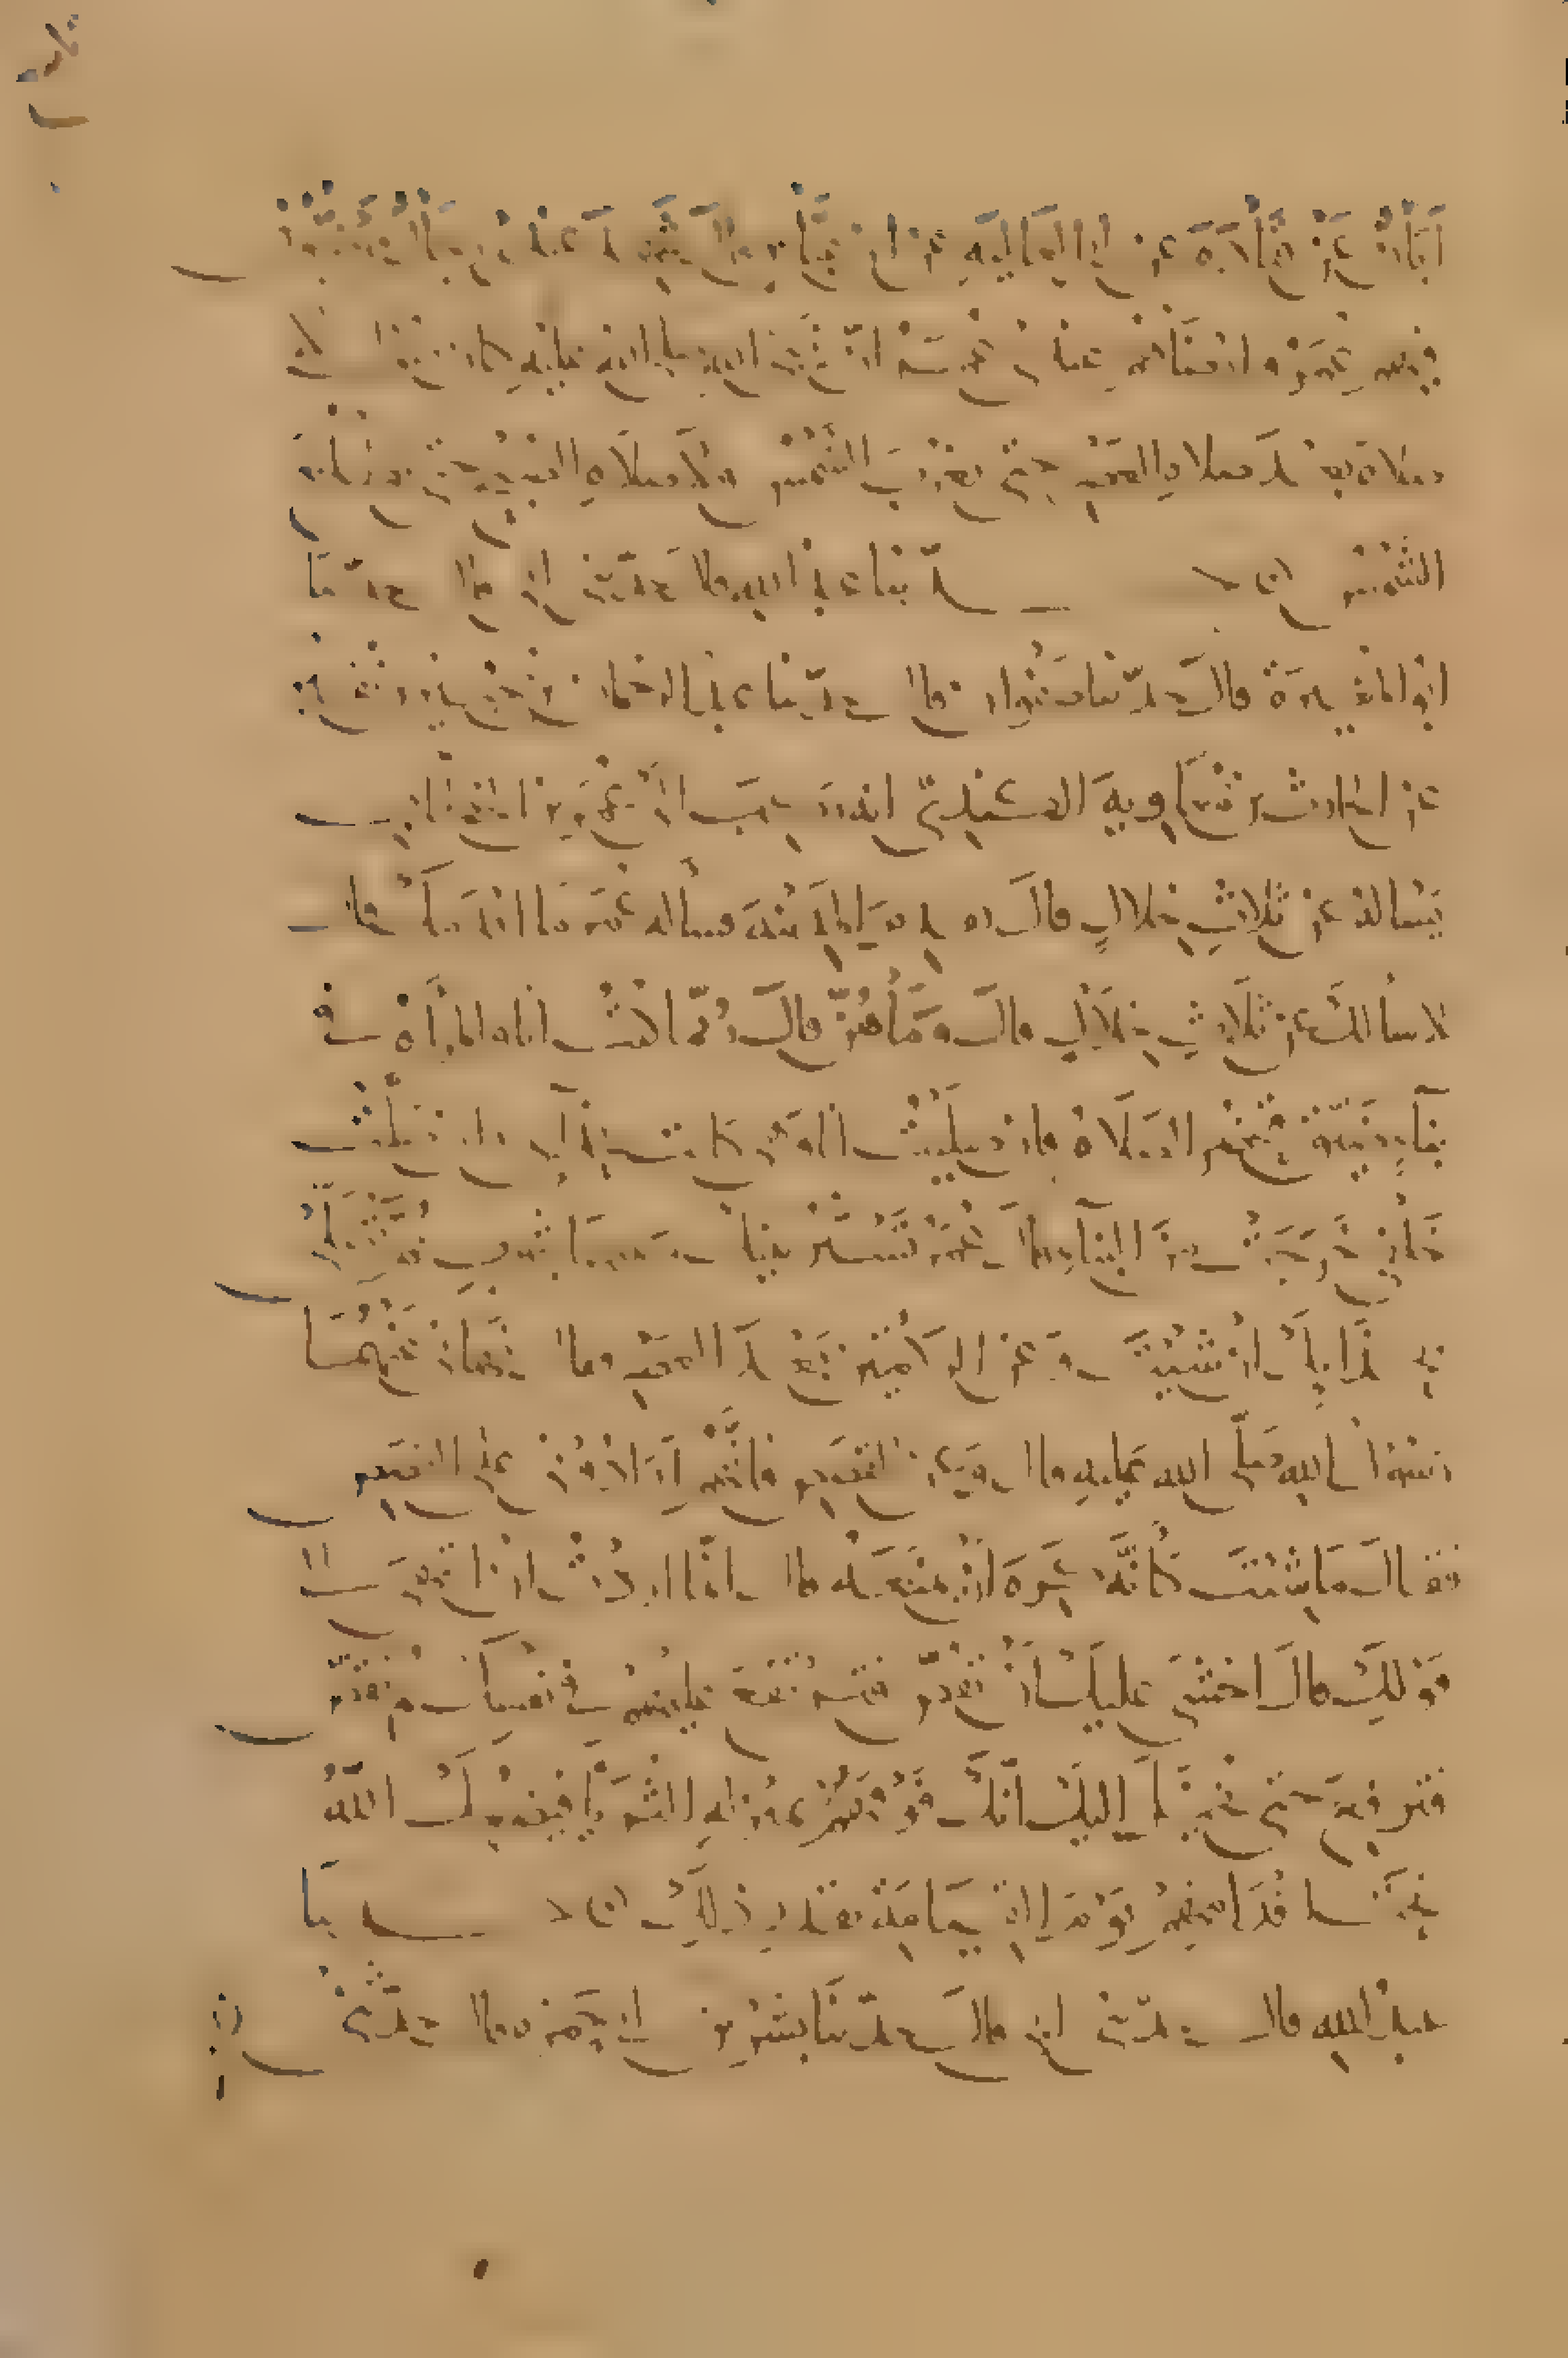 أبان عن قتادة عن أبي العالية عن ابن عباس قال شهد عندي رجال مرضيون
فيهم عمر وأرضاهم عندي عمر أن نبي الله صلى الله عليه كان يقول لا
صلاة بعد صلاة العصر حتى تغرب الشمس ولا صلاة بعد صلاة الصبح حتى تطلع
الشمس حدثنا عبد الله قال حدثني أبي قال حدثنا
أبو المغيرة قال حدثنا صفوان قال حدثنا عبد الرحمن بن جبير بن نفير
عن الحارث بن معاوية الكندي أنه ركب إلى عمر بن الخطاب
يسأله عن ثلاث خلال قال فقدم المدينة فسأله عمر ما أقدمك قال
لأسألك عن ثلاث خلال قال وما هن قال ربما كنت أنا والمرأة في
بناء ضيق فتحضر الصلاة فإن صليت أنا وهي كانت بحذائي وإن صلت
خلفي خرجت من البناء قال عمر تستر بينك وبينها بثوب ثم تصلي
بحذائك إن شئت وعن الركعتين بعد العصر فقال نهاني عنهما
رسول الله صلى الله عليه قال وعن القصص فإنهم أرادوني على القصص
فقال ما شئت كأنه كره أن يمنعه قال إنما أردت أن أنتهي إلى
قولك قال أخشى عليك أن تقص فترتفع عليهم في نفسك ثم تقص
فترتفع حتى يخيل إليك أنك فوقهم بمنزلة الثريا فيضعك الله
تحت أقدامهم يوم القيامة بقدر ذلك حدثنا
عبد الله قال حدثني أبي قال حدثنا بشر بن شعيب بن أبي حمزة قال حدثني أبي